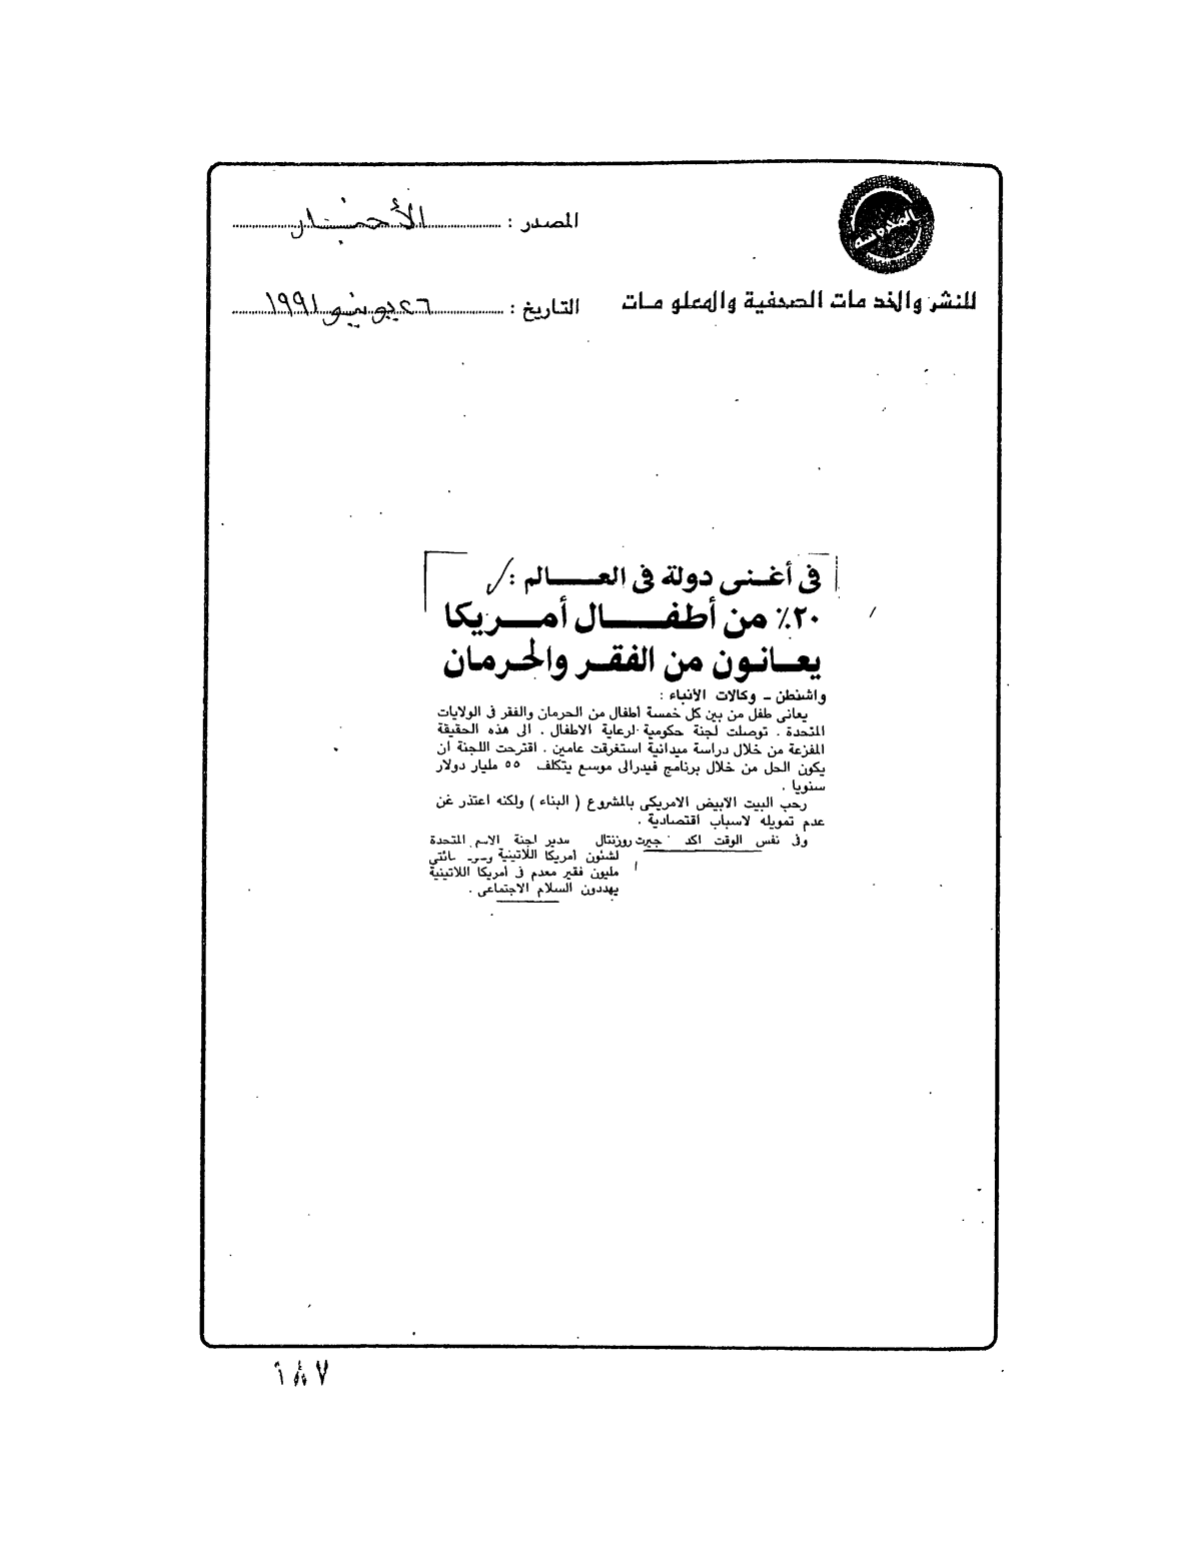 المصدر : الأخبار
للنشر والخدمات الصحفية والمعلومات
التاريخ : ٢٦ يونيو ١٩٩١
فى أغنى دولة فى العالم :
٢٠٪ من أطفال أمريكا
يعانون من الفقر والحرمان
واشنطن - وكالات الأنباء :
يعانى طفل من بين كل خمسة أطفال من الحرمان والفقر فى الولايات
المتحدة . توصلت لجنة حكومية لرعاية الاطفال . الى هذه الحقيقة
المفزعة من خلال دراسة ميدانية استغرقت عامين . اقترحت اللجنة ان
يكون الحل من خلال برنامج فيدرالى موسع يتكلف ٥٥ مليار دولار
سنويا .
رحب البيت الابيض الامريكى بالمشروع ( البناء ) ولكنه اعتذر عن
عدم تمويله لاسباب اقتصادية .
وفى نفس الوقت اكد جيرت روزنتال مدير لجنة الامم المتحدة
لشئون أمريكا اللاتينية
مليون فقير معدم فى أمريكا اللاتينية
يهددون السلام الاجتماعى .